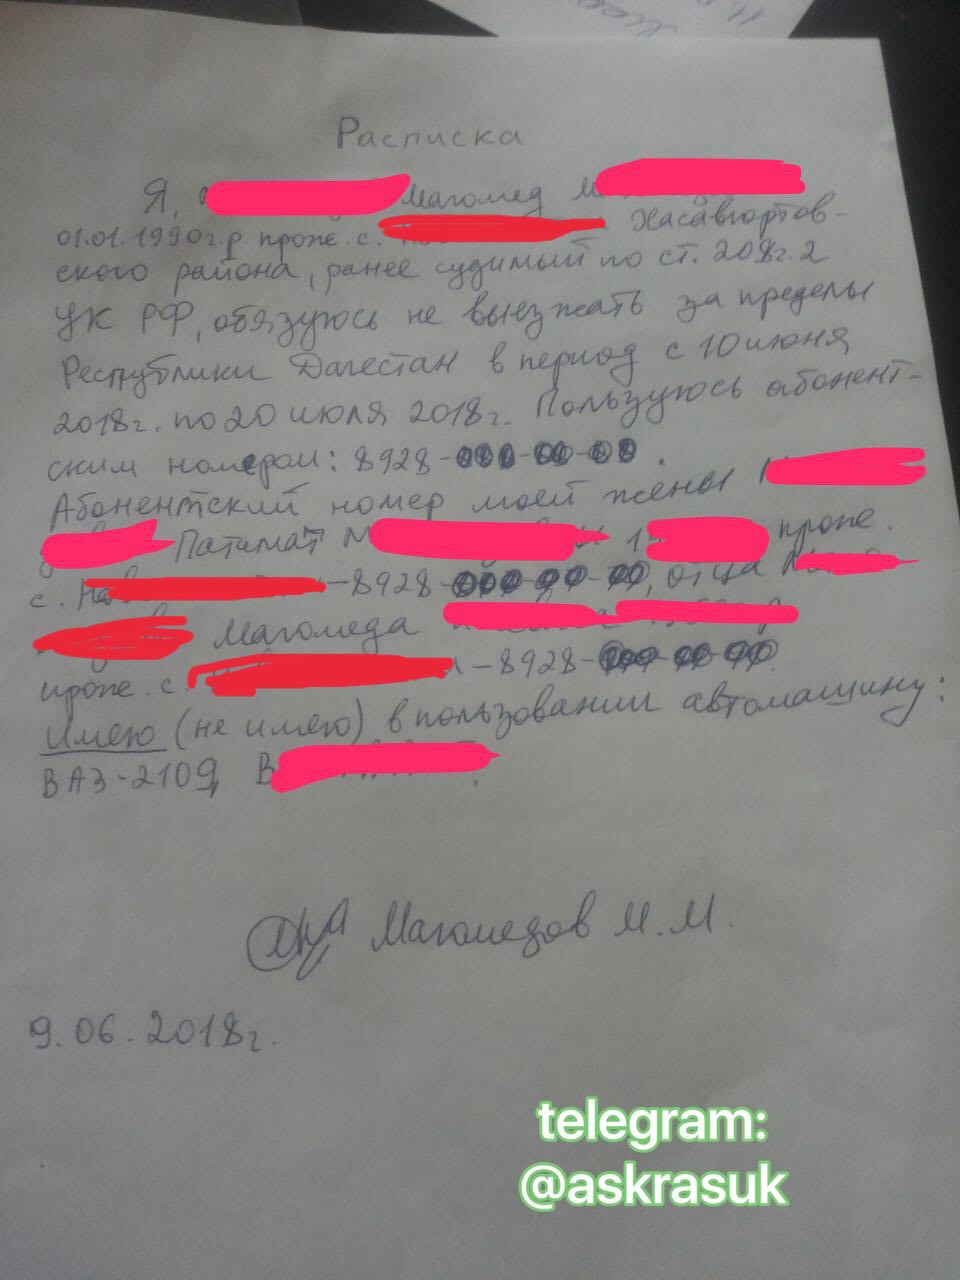 Расписка
Я, Магомед М
01.01.1990г.р. прож. с. Хасавюртов-
ского района, ранее судимый по ст. 208г.2
УК РФ, обязуюсь не выезжать за пределы
Республики Дагестан в период с 10 июня
2018г. по 20 июля 2018г. Пользуюсь абонент-
ским номером: 8928-
Абонентский номер моей жены
Патимат М 1 прож.
с. Нов -8928- , отца
Магомеда
прож. с. -8928-
Имею (не имею) в пользовании автомашину:
ВАЗ-2109, В
Магомедов М.М.
9.06.2018г.
telegram:
@askrasuk